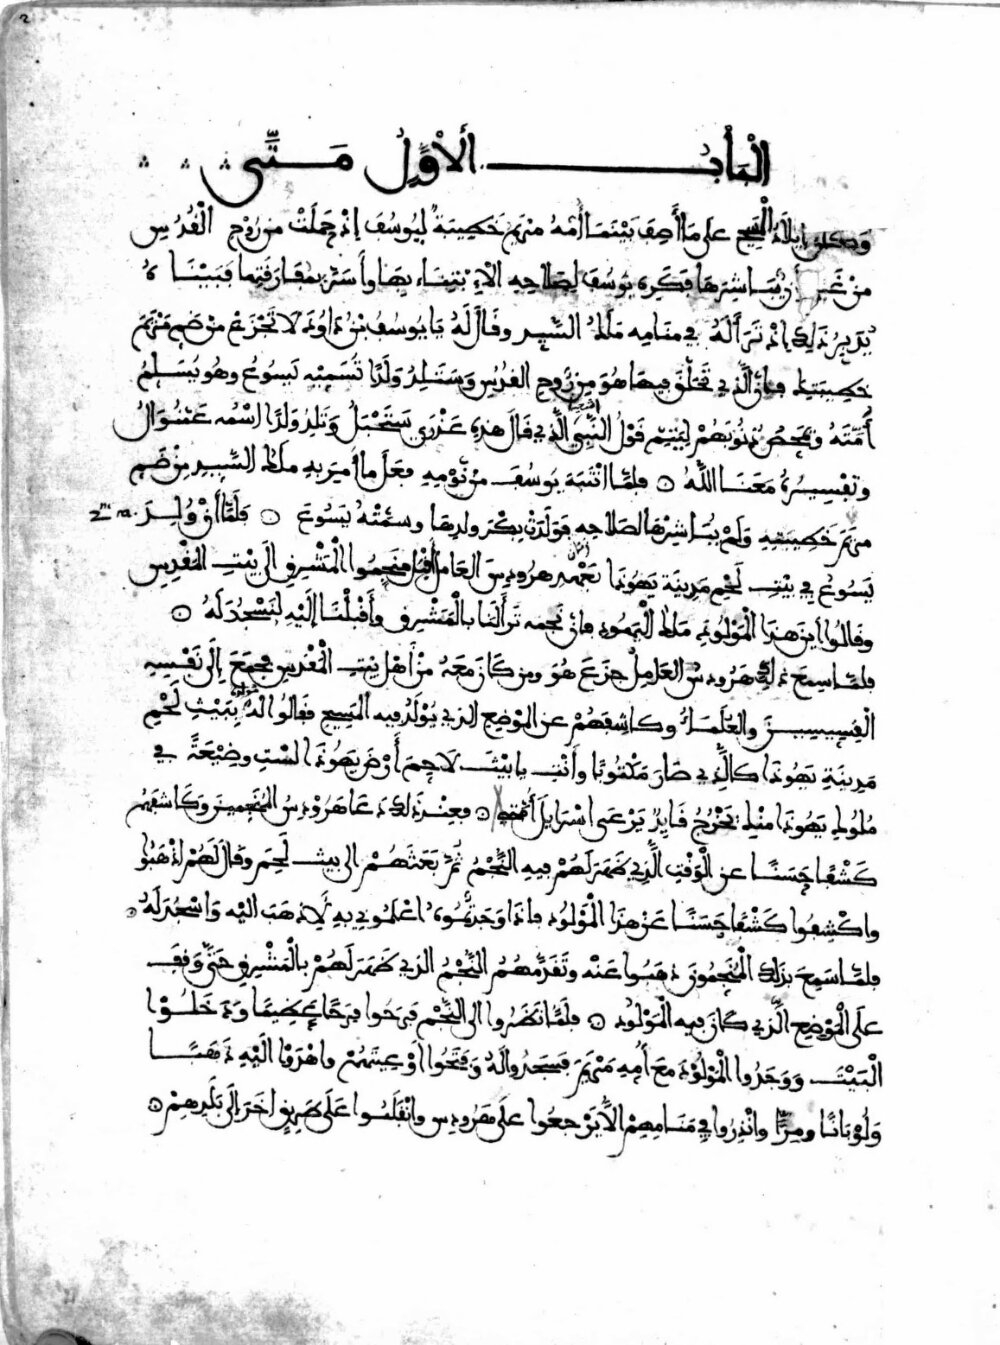 2
الْبَابُ الْأَوَّلُ مَتَّى
وكان إيلاد المسيح على ما أصف بَيْنَمَا أُمُّهُ مريم خَطِيبَةٌ لِيُوسُفَ إذْ حَمَلَتْ من رُوحِ الْقُدُسِ
من غير أن يُبَاشِرَهَا فكره يوسُف لصلاحه الابتناء بها وأسرّ بمفارقتها فبينا هُ
يُدبِرُ ذلك إذْ تَرَأا لَهُ في منامه مَلَكُ السَّيِّد وقَالَ لَهُ يَا يُوسُفُ بْنُ دَاوُدَ لا تَجْزَعْ من ضم مَرْيَم
خطيبتك فإن الَّذي تخلّق فيها هُوَ مِن رُوحِ القدس وَسَتَلِدُ وَلَدًا تُسَمِّيهِ يَسُوعُ وهُو يُسَلِّمُ
أُمَّتَهُ ويمحص ذنُوبَهُمْ لِيَتِمّ قول النَّبِيّ أشعيا الَّذي قَال هذه عَذْرَى سَتَحْبَلُ وَتَلِدُ ولَدًا اسْمُه عمنُوالُ
وتفسيرُهُ مَعَنَا اللَّهُ ۞ فلمَّا انْتَبَهَ يُوسُفُ من نَوْمِهِ فعَل ما أُمر به ملك السَّيِّد من ضم
مريم خَطِيبَتِهِ وَلَمْ يُبَاشِرْهَا لصلاحه فَوَلَدَتْ بِكْرَ ولدها وسمَّتْهُ يَسُوعَ ۞ فَلَمَّا أنْ وُلِدَ 2m ca.
يَسُوعُ في بَيْتِ لَحْمِ مَدِينَةِ يَهُوذَا بعهد هرودس العامل أقبل منجموا الْمَشْرِق الَى بَيْتِ المقدس
وقالوا أين هذا الْمَوْلُود مَلك الْيَهود فإن نجمه تَرَأا لَنَا بالْمَشْرِق وأَقْبَلْنَا إِلَيْهِ لِنَسْجُدَ لَهُ ۞
فلمّا سمع ذلك هَرُودس العامل جَزَعَ هُوَ ومن كَان معَهُ منْ أهْل بَيْتِ الْمقدس فجَمَعَ إِلَى نَفْسِهِ
الْقِسِّيسِينَ والعُلَمَاءَ وكاشفهم عن الموضع الذي يُولَدُ فيه المسيح فقالُوا لهُ يُولَدُ بِبَيْتِ لَحْمِ
مَدِينَةِ يَهُوذَا كالَّذِي صَارَ مَكْتُوبًا وأنت يا بيت لَاحِمَ أرْضَ يَهُوذَا لسْتِ وضِيعَةً في
مُلُوكِ يَهُوذَا منك يَخْرُجُ قَايِدٌ يَرْعَى اسْرَايلَ أمتى ۞ فعِنْدَ ذَلك دَعَا هَرُودس الْمنجمين وَكَاشَفَهُمْ
كَشْفًا حَسَنًا عن الْوَقْتِ الَّذِي ظَهَرَ لَهُمْ فِيهِ النَّجْمُ ثُمَّ بَعَثَهُمْ الى بيت لَحم وقَالَ لَهُمْ اذْهَبُوا
واكْشِفُوا كَشْفًا حَسَنًا عَنْ هذَا الْمَوْلُود فاذَا وَجَدتُّمُوه اعْلمُوني به لأذهَبَ الَيْه وَاسْجُدَ لَهُ ۞
فلمّا سَمِعَ بذلك الْمُنَجمُونَ ذَهَبُوا عَنْهُ وتَقَدَّمَهُمُ النَّجْمُ الذي ظَهَرَ لَهُمْ بالْمَشْرِق حَتَّى وَقَف
علَى الْمَوْضِعِ الَّذي كَانَ فِيه الْمَوْلُود ۞ فَلَمَّا نَظَرُوا الى النَّجْم فَرِحُوا فَرَحًا عَظِيمًا وَدَخَلُوا
الْبَيْتَ وَوَجَدُوا الْمَوْلُودَ مَعَ أُمِهِ مَرْيَمَ فسَجَدُوا لَهُ وَفَتَحُوا أَوْعِيَتَهُمْ واهْدَوْا الَيْهِ ذَهَبًا
وَلُوبَانًا ومِرًّا وانْذِرُوا في مَنَامِهِمْ الَّا يَرْجعُوا علَى هَرُودس وانْقَلَبُوا عَلَى طَرِيقٍ اخَرَ إِلَى بَلَدِهِمْ ۞